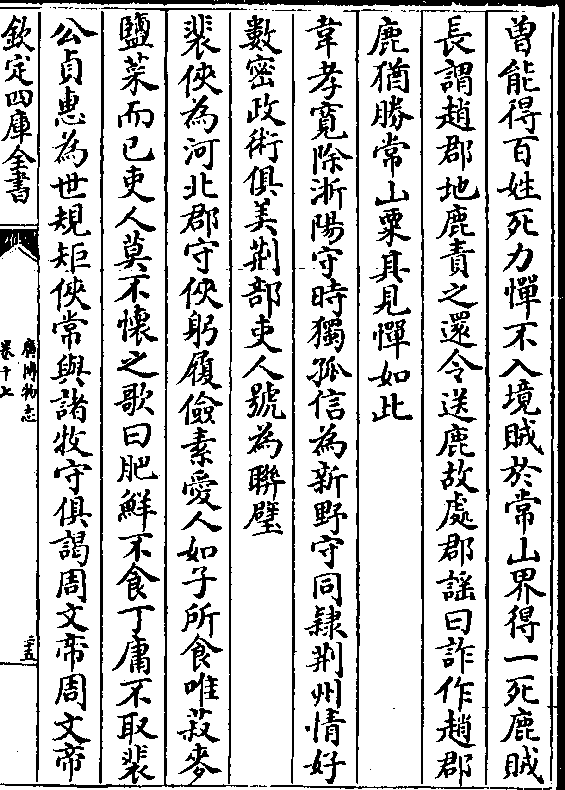 曾能得百姓死力憚不入境賊於常山界得一死鹿賊
長謂趙郡地鹿責之還令送鹿故處郡謡曰詐作趙郡
鹿猶勝常山粟其見憚如此
韋孝寛除淅陽守時獨孤信為新野守同隸荆州情好
數密政術俱美荆部吏人號為聯璧
裴俠為河北郡守俠躬履儉素愛人如子所食唯菽麥
鹽菜而已吏人莫不懷之歌曰肥鮮不食丁庸不取裴
公貞惠為世規矩俠常與諸牧守俱謁周文帝周文帝
欽定四庫全書
廣博物志
卷十七